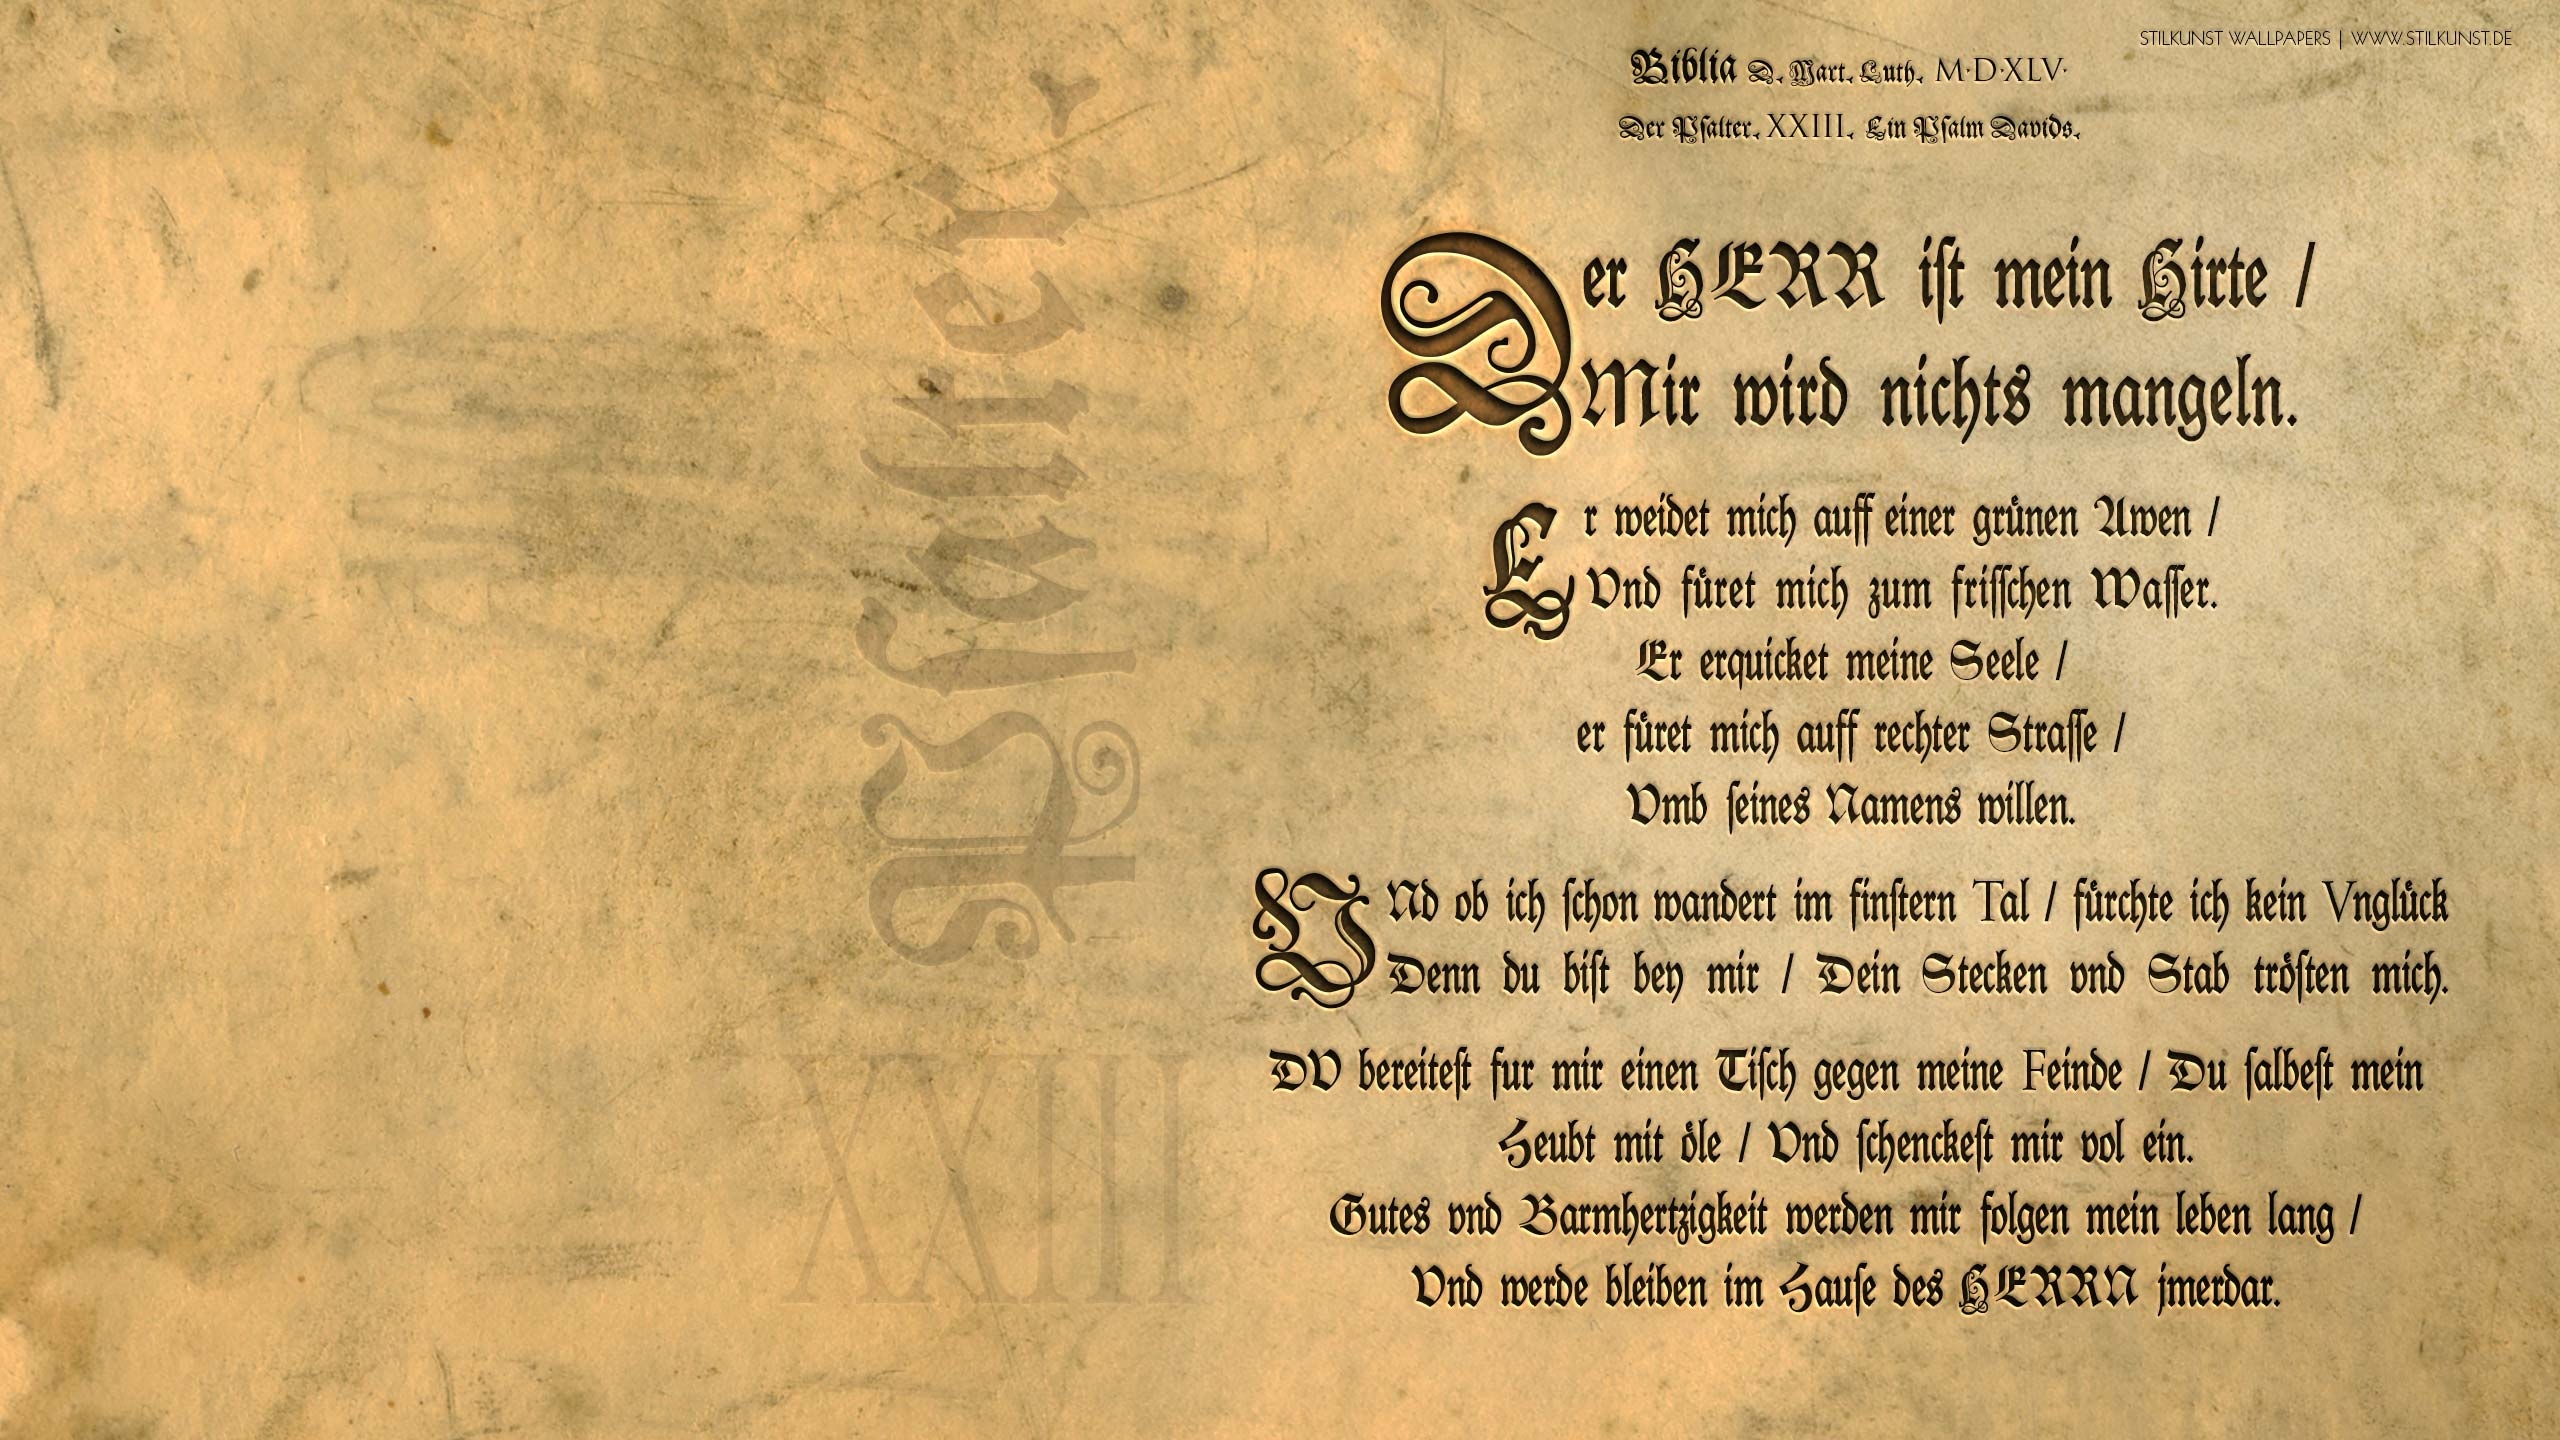 STILKUNST WALLPAPERS | WWW.STILKUNST.DE
Biblia D. Mart. Luth. M·D·XLV·
Der Pſalter. XXIII. Ein Pſalm Davids.
Der HERR iſt mein Hirte /
Mir wird nichts mangeln.
Er weidet mich auff einer gruͤnen Awen /
Vnd fuͤret mich zum friſſchen Waſſer.
Er erquicket meine Seele /
er fuͤret mich auff rechter Straſſe /
Vmb ſeines Namens willen.
VNd ob ich ſchon wandert im finſtern Tal / fuͤrchte ich kein Vngluͤck
Denn du biſt bey mir / Dein Stecken vnd Stab troͤſten mich.
DV bereiteſt fur mir einen Tiſch gegen meine Feinde / Du ſalbeſt mein
Heubt mit oͤle / Vnd ſchenckeſt mir vol ein.
Gutes vnd Barmhertzigkeit werden mir folgen mein leben lang /
Vnd werde bleiben im Hauſe des HERRN jmerdar.
Pſalter.
XXIII